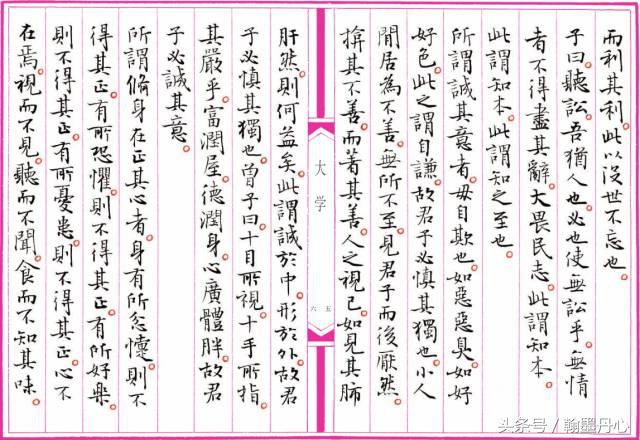 而利其利。此以沒世不忘也。
子曰。聽訟。吾猶人也。必也使無訟乎。無情
者不得盡其辭。大畏民志。此謂知本。
此謂知本。此謂知之至也。
所謂誠其意者。毋自欺也。如惡惡臭。如好
好色。此之謂自謙。故君子必慎其獨也。小人
閒居為不善。無所不至。見君子而後厭然。
揜其不善。而著其善。人之視己。如見其肺
大学
五
六
肝然。則何益矣。此謂誠於中。形於外。故君
子必慎其獨也。曾子曰。十目所視。十手所指。
其嚴乎。富潤屋。德潤身。心廣體胖。故君
子必誠其意。
所謂脩身在正其心者。身有所忿懥。則不
得其正。有所恐懼。則不得其正。有所好樂。
則不得其正。有所憂患。則不得其正。心不
在焉。視而不見。聽而不聞。食而不知其味。
头条号 / 翰墨丹心